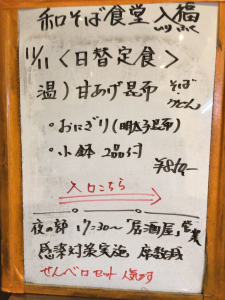 和そば食堂 入福
11/11 〈日替定食〉
温）甘あげ昆布 そば うどん
・おにぎり（明太子昆布）
・小鉢 2品付
入口こちら
夜の部 17:30〜「居酒屋」営業
感染対策実施 席数減
せんべロセット 人気です